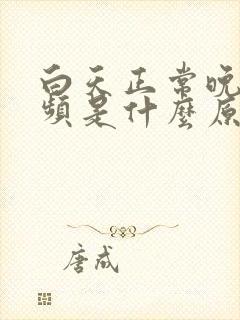 白天正常晚
頻是什麼原
唐成